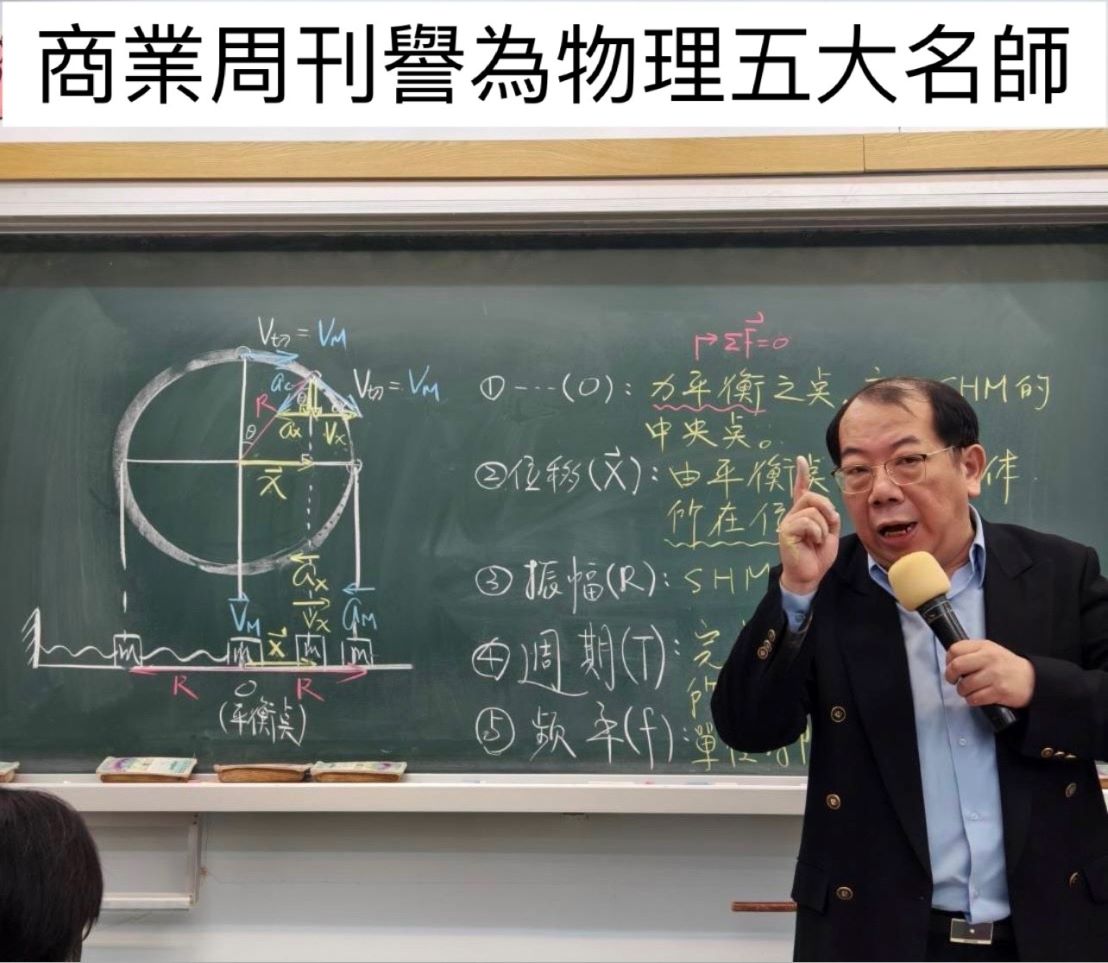 商業周刊譽為物理五大名師
V切 = VM
ac
R
V切 = VM
θ
θ
ax
Vx
X
ax
VM
Vx
aM
m
m
X
m
m
R
O
R
(平衡点)
ΣF=0
①----(O): 力平衡之点,
SHM的
中央点。
②位移(X): 由平衡点
体
所在位
③振幅(R): SHM
④週期(T): 完
所
⑤頻率(f): 單位時間